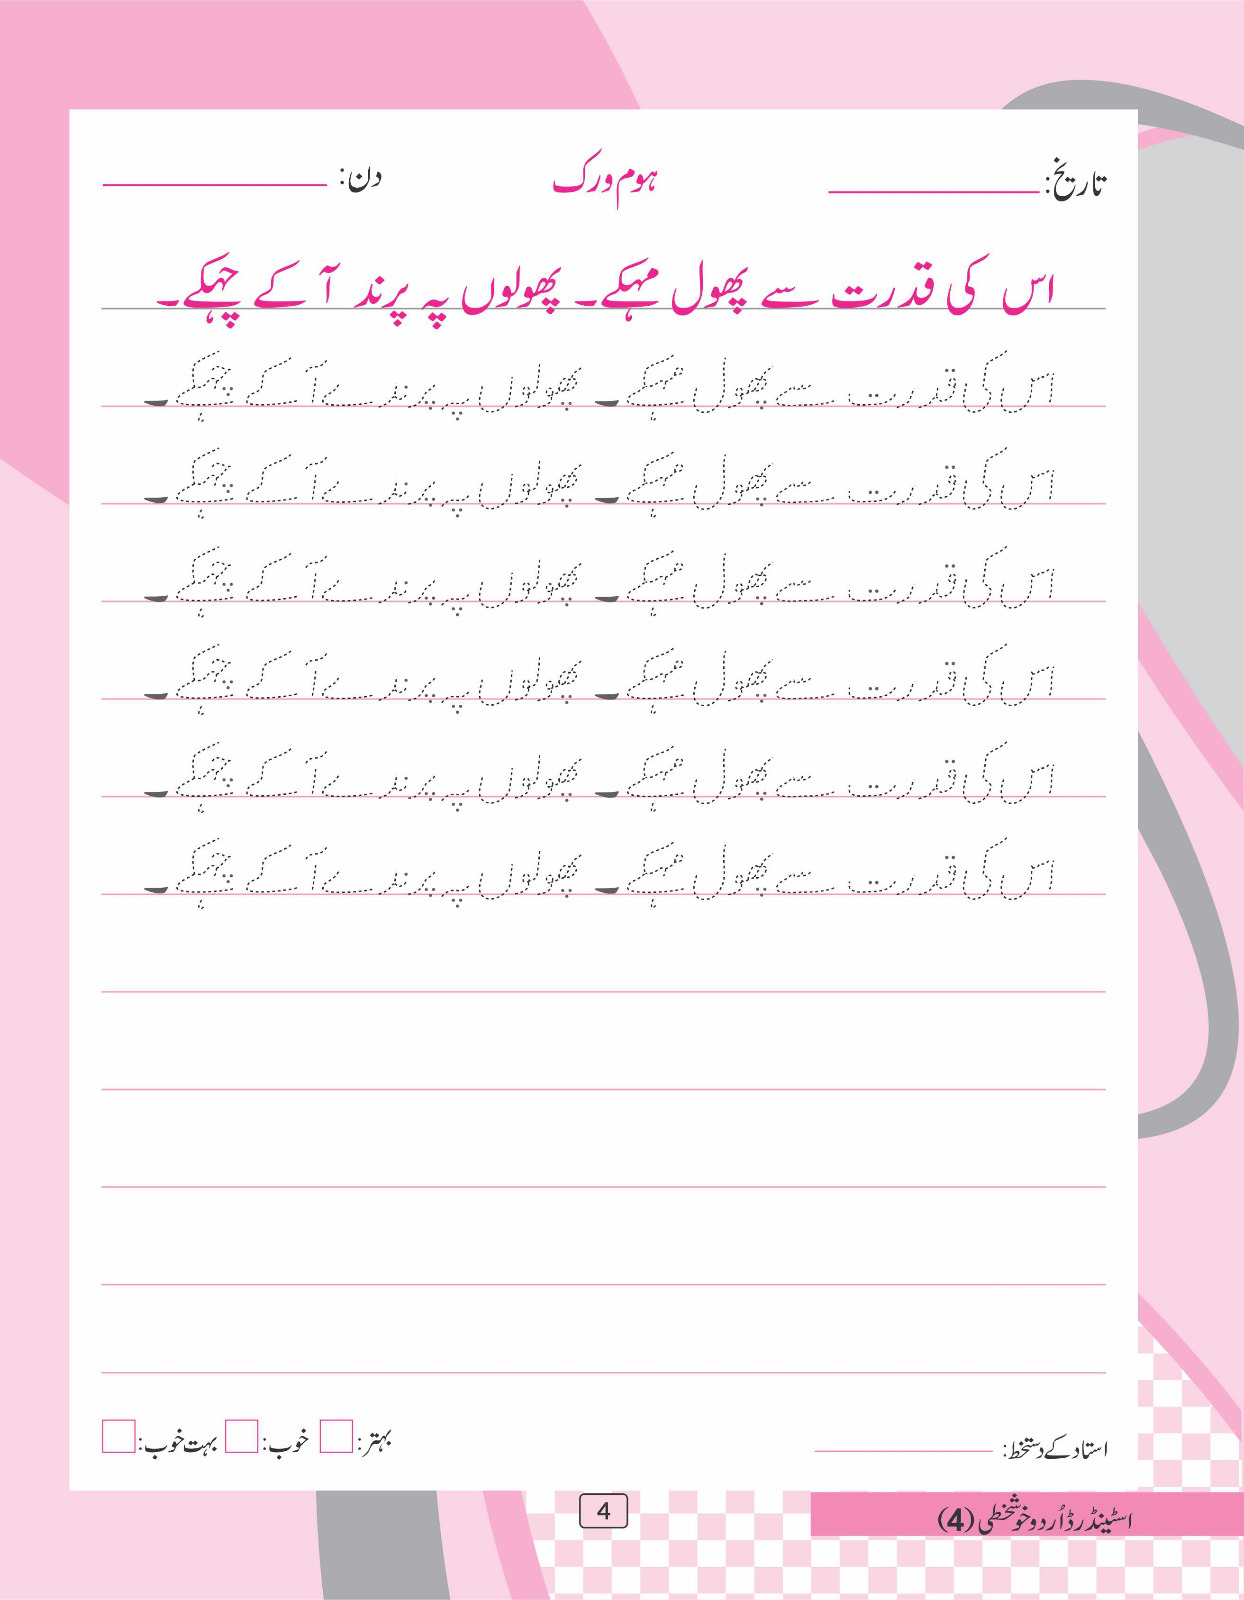 تاریخ: ہوم ورک دن:
اس کی قدرت سے پھول مہکے۔ پھولوں پہ پرند آ کے چہکے۔
اس کی قدرت سے پھول مہکے۔ پھولوں پہ پرندے آ کے چہکے۔
اس کی قدرت سے پھول مہکے۔ پھولوں پہ پرندے آ کے چہکے۔
اس کی قدرت سے پھول مہکے۔ پھولوں پہ پرندے آ کے چہکے۔
اس کی قدرت سے پھول مہکے۔ پھولوں پہ پرندے آ کے چہکے۔
اس کی قدرت سے پھول مہکے۔ پھولوں پہ پرندے آ کے چہکے۔
اس کی قدرت سے پھول مہکے۔ پھولوں پہ پرندے آ کے چہکے۔
استاد کے دستخط: بہتر: خوب: بہت خوب:
اسٹینڈرڈ اُردو خوشخطی (4)
4